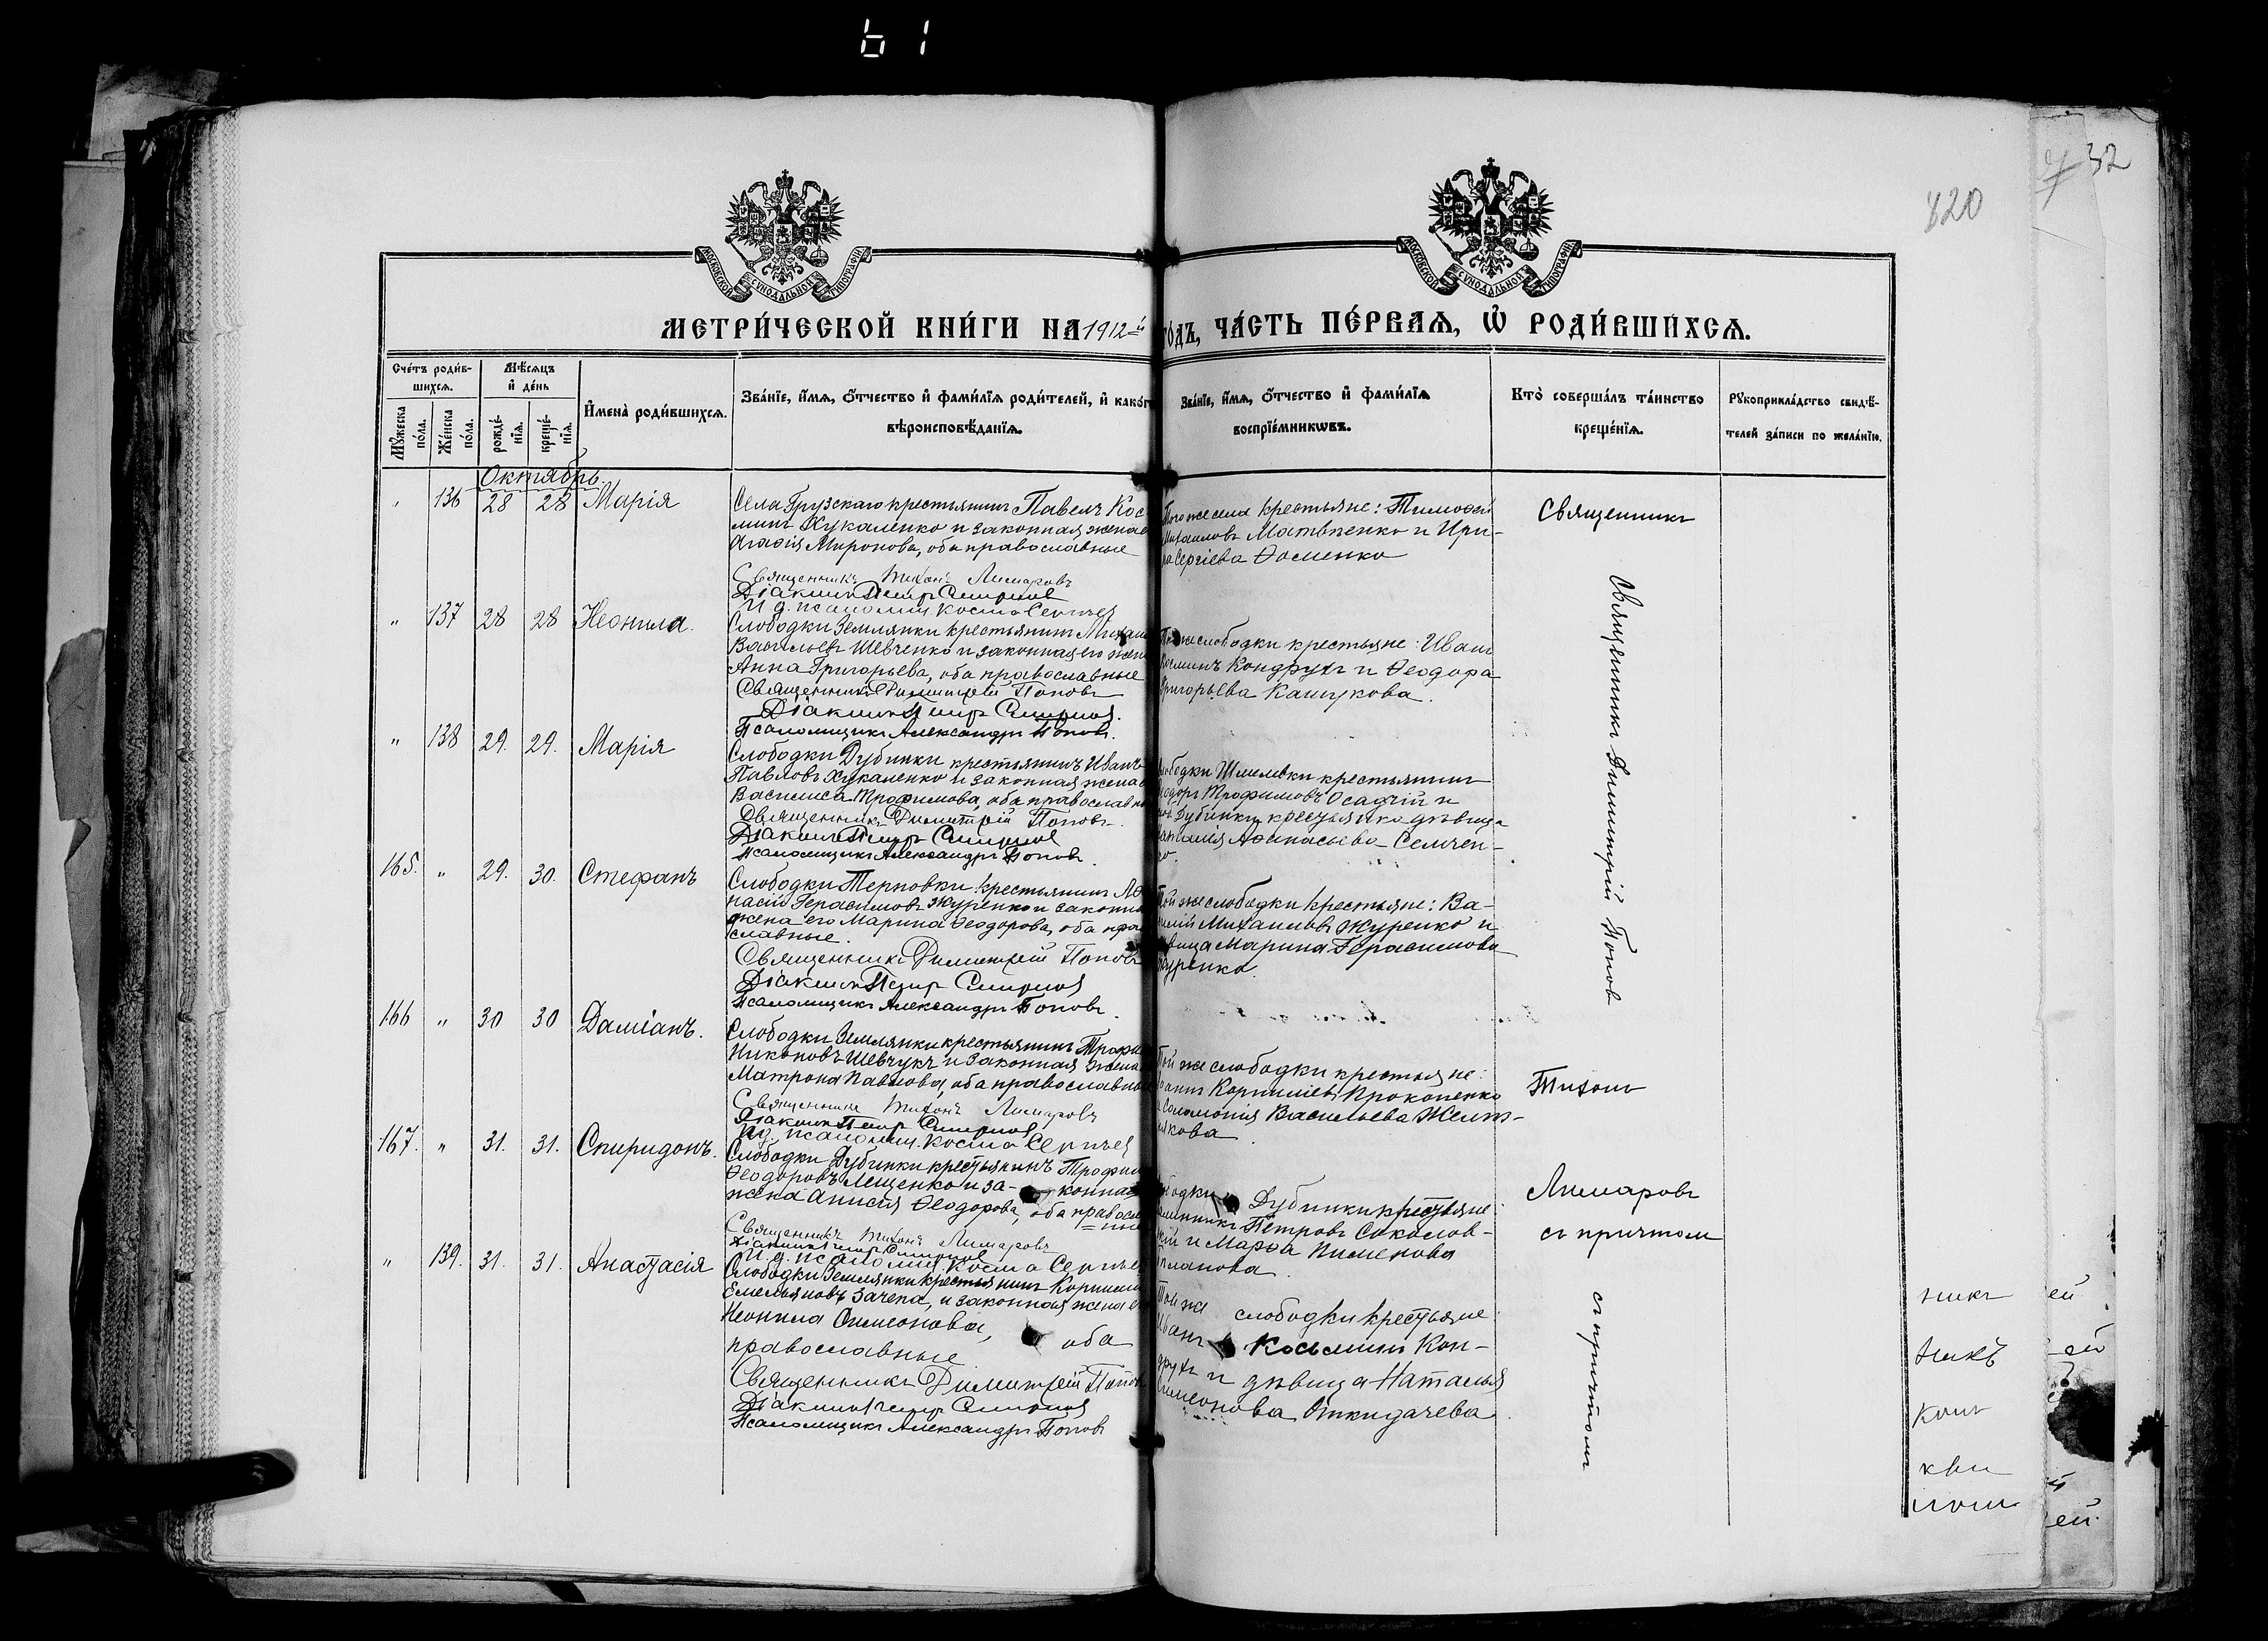 61
32
820
МОСКОВСКОЙ СУНОДАЛЬНОЙ ТИПОГРАФІИ
МОСКОВСКОЙ СУНОДАЛЬНОЙ ТИПОГРАФІИ
МЕТРИ́ЧЕСКОЙ КНИ́ГИ НА 1912-й
ГО́ДЪ, ЧА́СТЬ ПЕ́РВАѦ, Ѡ РОДИ́ВШИХСѦ.
Сче́тъ роди́в-
шихсѧ.
Мꙋ́жеска по́ла.
Же́нска по́ла.
Мѣ́сѧцъ
и де́нь
рожде́-
нїѧ.
креще́-
нїѧ.
Имена̀ роди́вшихсѧ.
Зва́нїе, и́мѧ, о́тчество и фами́лїѧ роди́телей, и како́г
вѣроисповѣ́данїѧ.
Зва́нїе, и́мѧ, о́тчество и фами́лїѧ
воспрїе́мникѡвъ.
Кто̀ соверша́лъ та́инство
креще́нїѧ.
Рꙋкоприкла́дство свидѣ́-
телей за́писи по жела́нїю.
Октябрь.
" 136 28 28 Марія
Села Грузскаго крестьянинъ Павелъ Кос
минъ Жукаленко и законная жена е
Агаѳія Миронова, оба православные
Священникъ Тихонъ Лимаровъ
Діаконъ Петръ Смирнов
И. д. псаломщ. Косма Сергѣев
Того же села крестьяне: Тимоѳей
Михаиловъ Матвѣенко и Ири-
на Сергіева Ѳоменко
Священникъ
" 137 28 28 Неонила.
Слободки Землянки крестьянинъ Михаи
Васильевъ Шевченко и законная его жен
Анна Григорьева, оба православные
Священникъ Димитрій Поповъ
Діаконъ Петръ Смирнов.
Псаломщикъ Александръ Поповъ.
Той же слободки крестьяне: Иванъ
Косминъ Кондрухъ и Ѳеодора
Григорьева Кашукова.
" 138 29. 29. Марія
Слободки Дубинки крестьянинъ Иванъ
Павловъ Жукаленко и законная жена е
Василиса Трофимова, оба православн
Священникъ Димитрій Поповъ.
Діаконъ Петръ Смирнов
Псаломщикъ Александръ Поповъ.
Слободки Шмелевки крестьянинъ
Ѳеодоръ Трофимовъ Осадчій и
Дубинки крестьянка дѣвица
Аѳанасьева Семчен-
ко.
165. " 29. 30. Стефанъ
Слободки Терновки крестьянинъ Аѳ
насій Герасимовъ Журенко и законна
жена его Марина Ѳеодорова, оба пра
славные.
Священникъ Димитрій Поповъ
Діаконъ Петръ Смирнов
Псаломщикъ Александръ Поповъ.
Той же слободки крестьяне: Ва-
силій Михаиловъ Журенко и
дѣвица Марина Герасимова
Журенко.
166 " 30 30 Даміанъ.
Слободки Землянки крестьянинъ Трофи
Никоновъ Шевчукъ и законная жена
Матрона Павлова, оба православны
Священникъ Тихонъ Лимаровъ
Діаконъ Петръ Смирнов
И. д. псаломщ. Косма Сергѣев
Той же слободки крестьяне:
Корниліевъ Прокопенко
и Соломонія Васильева Желт-
някова
167. " 31. 31. Спиридонъ.
Слободки Дубинки крестьянинъ Трофим
Ѳеодоровъ Лещенко и за- конная
жена Анисія Ѳеодорова, оба правосла
=ные
Священникъ Тихонъ Лимаровъ
Діаконъ Петръ Смирнов
И. д. псаломщ. Косма Сергѣев
Слободки Дубинки крестьяне:
Петровъ Соколов-
скій и Марѳа Пименова
" 139. 31. 31. Анастасія
Слободки Землянки крестьянинъ Корнилій
Емельяновъ Зачепа, и законная жена е
Неонила Симеонова, оба
православные
Священникъ Димитрій Попов
Діаконъ Петръ Смирнов
Псаломщикъ Александръ Поповъ
Той же слободки крестьяне:
Иванъ Косьминъ Кон-
друхъ и дѣвица Наталья
Симеонова Откидачева.
Священникъ Димитрій Попов
съ причтомъ
Тихонъ
Лимаровъ
съ причтомъ
никъ ей
никъ ей
ей.